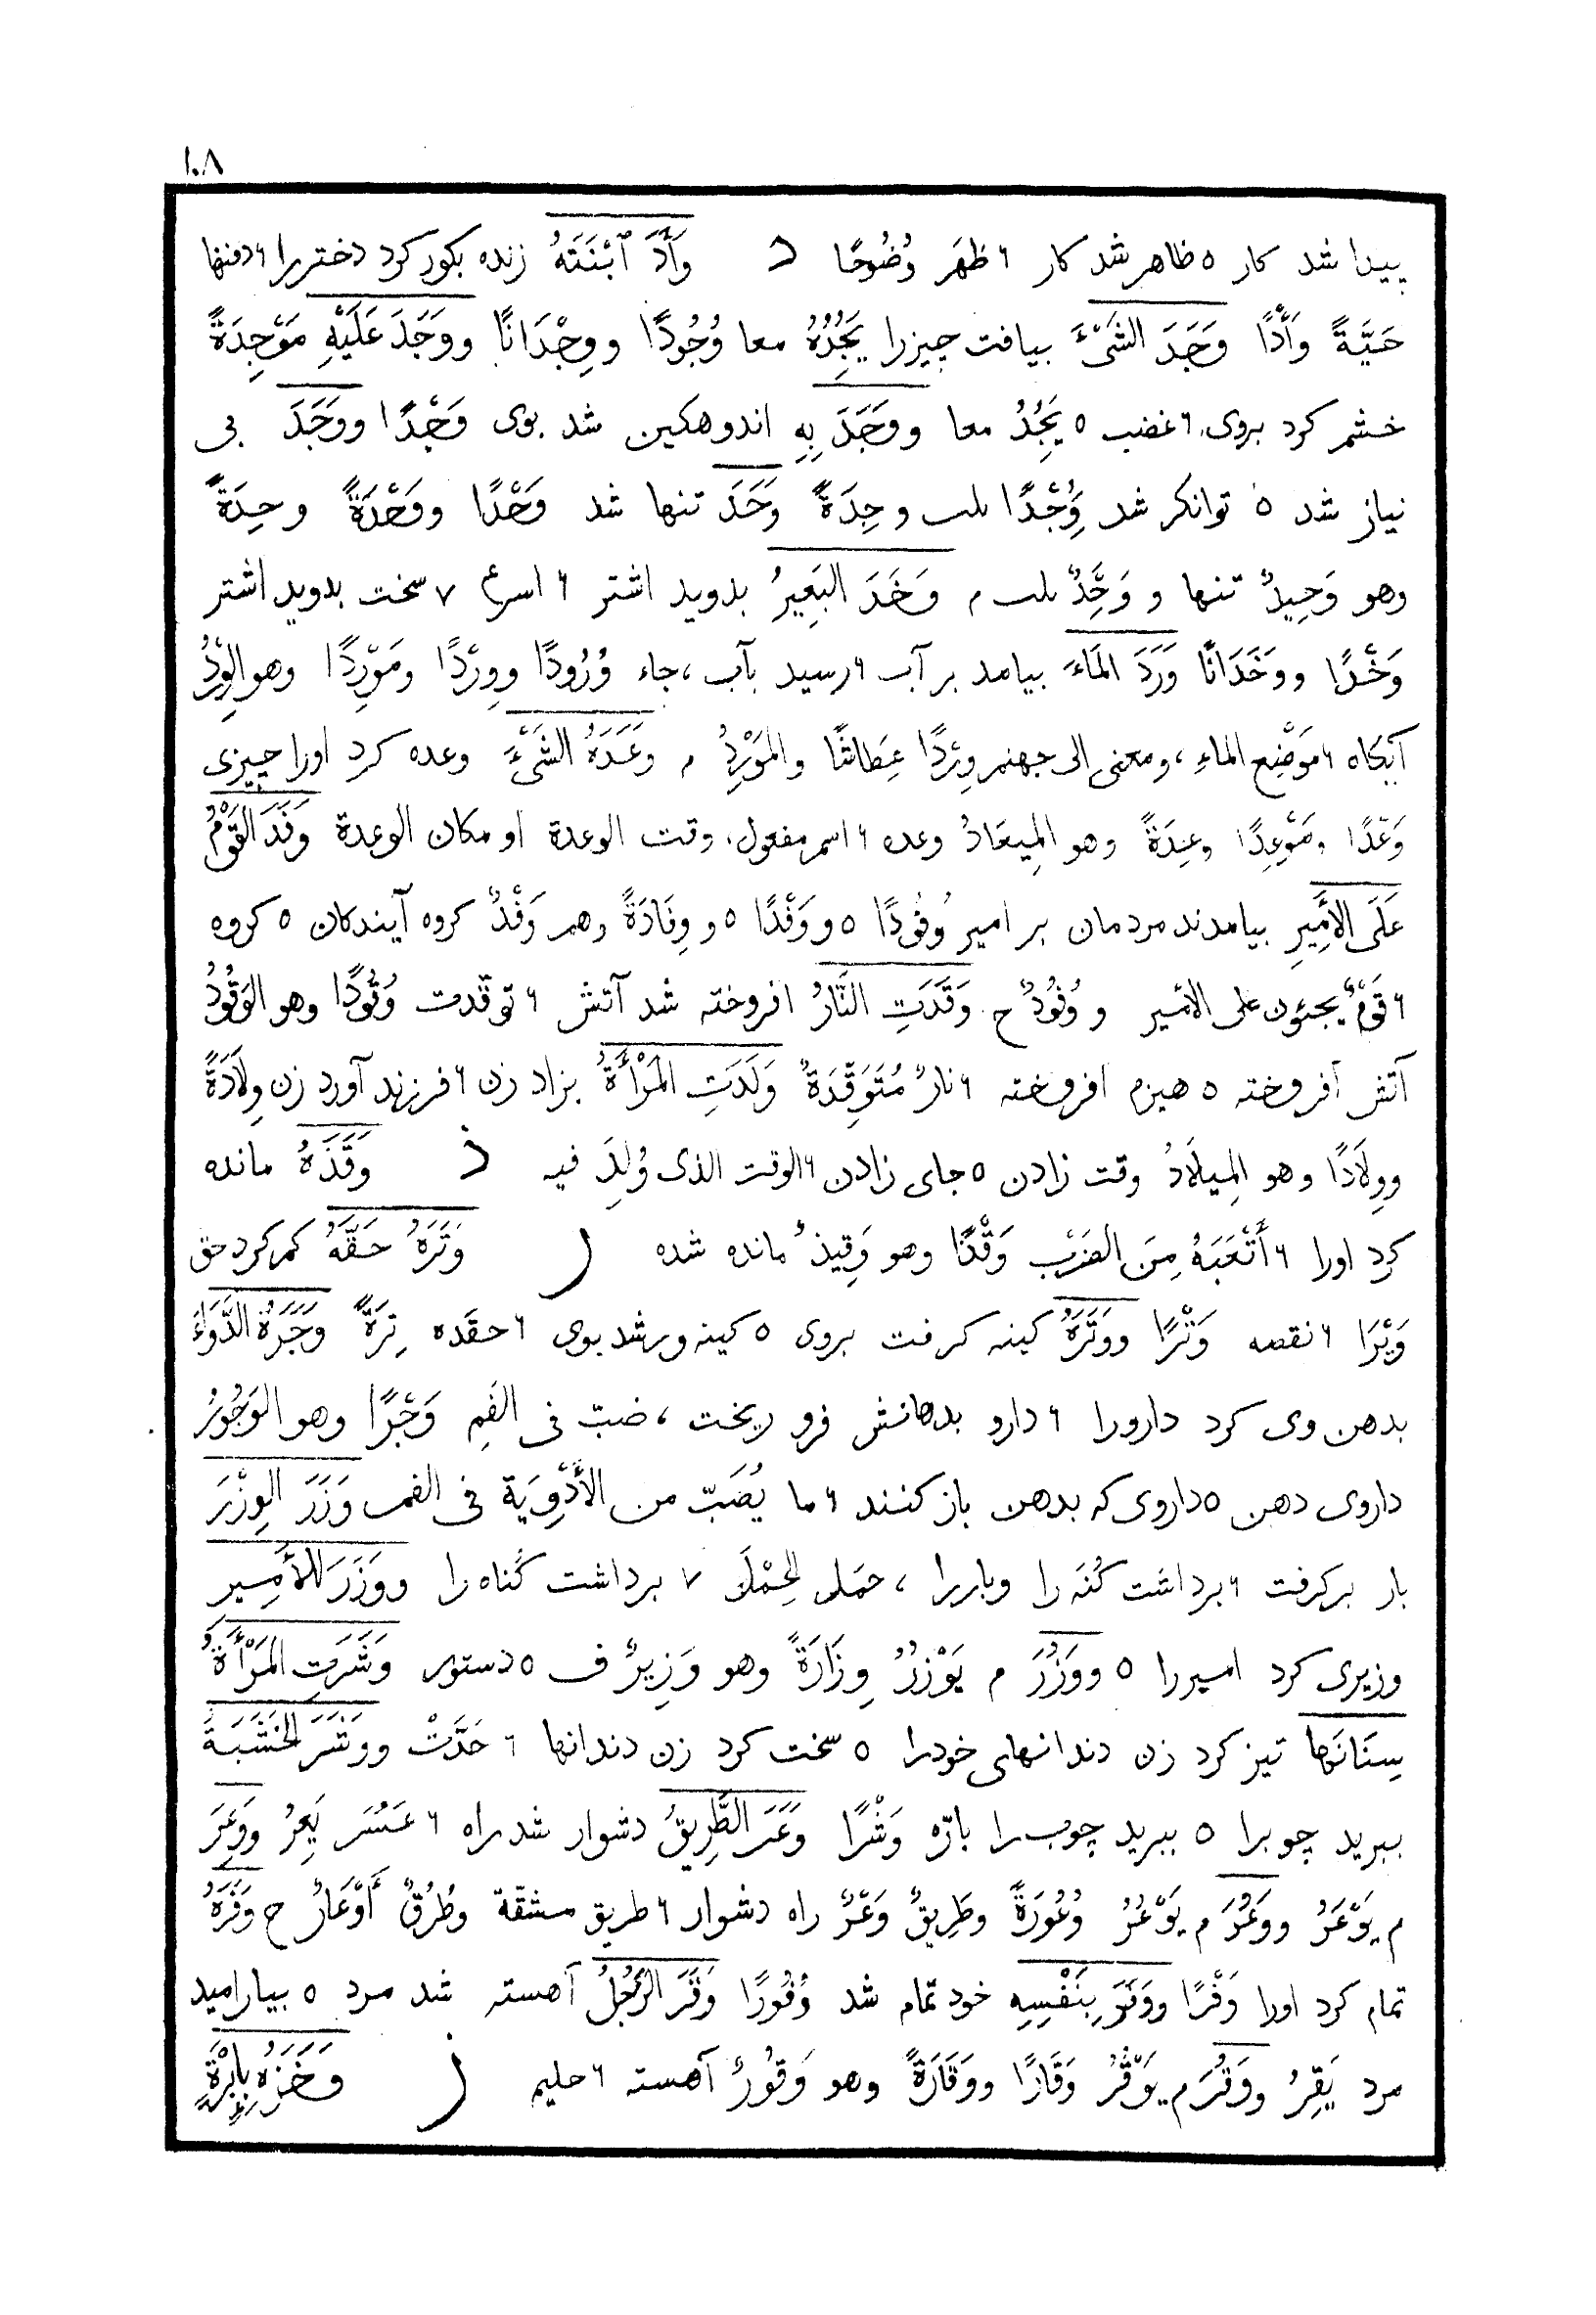 ١٠٨
پیدا شد کار ٥ ظاهر شد کار ٦ ظَهَر وُضُوحًا د وَأَدَ ٱبْنَتَهُ زنده بکور کرد دختر را ٦ دفنها
حَيَّةً وَأْدًا وَجَدَ الشَّىْءَ بیافت چیزرا يَجِدُهُ معا وُجُودًا و وِجْدَانًا و وَجَدَ عَلَيْهِ مَوْجِدَةً
خشم کرد بروی ٦ غضب ٥ يَجِدُ معا و وَجَدَ بِهِ اندوهکین شد بوی وَجْدًا و وَجَدَ بی
نیاز شد ٥ توانکر شد وُِجْدًا ىلىـ و جِدَةً وَحَدَ تنها شد وَحْدًا و وَحْدَةً و حِدَةً
وهو وَحِيدٌ تنها و وَحَِدٌ ىلىـ م وَخَدَ البَعِيرُ بدوید اشتر ٦ اسرع ٧ سخت بدوید اشتر
وَخْدًا و وَخَدَانًا وَرَدَ المَاءَ بیامد بر آب ٦ رسید بآب ، جاء وُرُودًا و وِرْدًا و مَوْرِدًا وهو الوِرْدُ
آبکاه ٦ مَوْضِع الماءِ ، ومعنى الى جهنم وِرْدًا عِطَاشًا والمَوْرِدُ م وَعَدَهُ الشَّىْءَ وعده کرد اورا چیزی
وَعْدًا و مَوْعِدًا و عِدَةً وهو المِيعَادُ وعده ٦ اسم مفعول، وقت الوعدة او مکان الوعدة وَفَدَ القَوْمُ
عَلَى الأَمِيرِ بیامدند مردمان بر امیر وُفُودًا ٥ و وَفْدًا ٥ و وِفَادَةً وهم وَفْدٌ کروه آیندکان ٥ کروه
٦ قَوْمٌ يجيئون على الأمير و وُفُودٌ ح وَقَدَتِ النَّارُ افروخته شد آتش ٦ توقّدت وُقُودًا وهو الوَقُودُ
آتش افروخته ٥ هیزم افروخته ٦ نارٌ مُتَوَقِّدَةٌ وَلَدَتِ المَرْأَةُ بزاد زن ٦ فرزند آورد زن وِلَادَةً
و وِلَادًا وهو المِيلَادُ وقت زادن ٥ جای زادن ٦ الوقت الذى وُلِدَ فيه ذ وَقَذَهُ مانده
کرد اورا ٦ أَتْعَبَهُ مِنَ الضَرْبِ وَقْذًا وهو وَقِيذٌ مانده شده ر وَتَرَهُ حَقَّهُ کم کرد حق
وَیْرَا ٦ نقصه وَتْرًا و وَتَرَهُ کینه کرفت بروی ٥ کینه ور شد بوی ٦ حقده تِرَةً وَجَرَهُ الدَّوَاءَ
بدهن وی کرد دارورا ٦ دارو بدهانش فرو ریخت ، ضبّ فى الفَمِ وَجْرًا وهو الوَجُورُ
داروی دهن ٥ داروی که بدهن باز کنند ٦ ما يُصَبّ من الأَدْوِيَة فى الفم وَزَرَ الوِزْرَ
بار برکرفت ٦ برداشت کُنَه را وبار را ، حمل لِحِمْلَ ٧ برداشت کناه را و وَزَرَ للأَمِيرِ
وزیری کرد امیر را ٥ و وَزُرَ م يَوْزُرُ وِزَارَةً وهو وَزِيرٌ ف ٥ دستور وَشَرَتِ المَرْأَةُ
سِنَانَها تیز کرد زن دندانهای خودرا ٥ سخت کرد زن دندانها ٦ حَدَّتْ و وَشَرَ الخَشَبَةَ
ببرید چوبرا ٥ ببرید چوب را بارّه وَشْرًا وَعَرَ الطَّرِيقُ دشوار شد راه ٦ عَسُر يَعِرُ و وَعِرَ
م يَوْعَرُ و وَعُرَ م يَوْعُرُ وُعُورَةً وطَرِيقٌ وَعْرٌ راه دشوار ٦ طریق مشقّة وطُرُقٌ أَوْعَارٌ ح وَفَرَهُ
تمام کرد اورا وَفْرًا و وَفَرَ بِنَفْسِهِ خود تمام شد وُفُورًا وَقَرَ الرَّجُلُ آهسته شد مرد ٥ بیارامید
مرد يَقِرُ و وَقُرَ م يَوْقُرُ وَقَارًا و وَقَارَةً وهو وَقُورٌ آهسته ٦ حلیم ز وَخَزَهُ بِإِبْرَةٍ